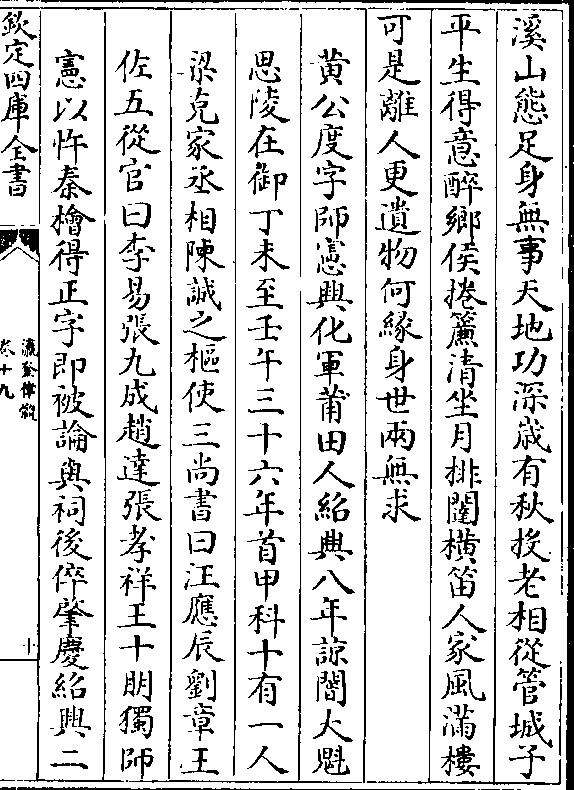 溪山態足身無事天地功深嵗有秋投老相從管城子
平生得意醉鄉侯捲簾清坐月排闥横笛人家風滿樓
可是離人更遺物何緣身世兩無求
黄公度字師憲興化軍莆田人紹興八年諒闇大魁
思陵在御丁未至壬午三十六年首甲科十有一人
梁克家丞相陳誠之樞使三尚書曰汪應辰劉章王
佐五從官曰李易張九成趙逵張孝祥王十朋獨師
憲以忤秦檜得正字即被論與祠後倅肇慶紹興二
欽定四庫全書
瀛奎律髓
卷十九
十